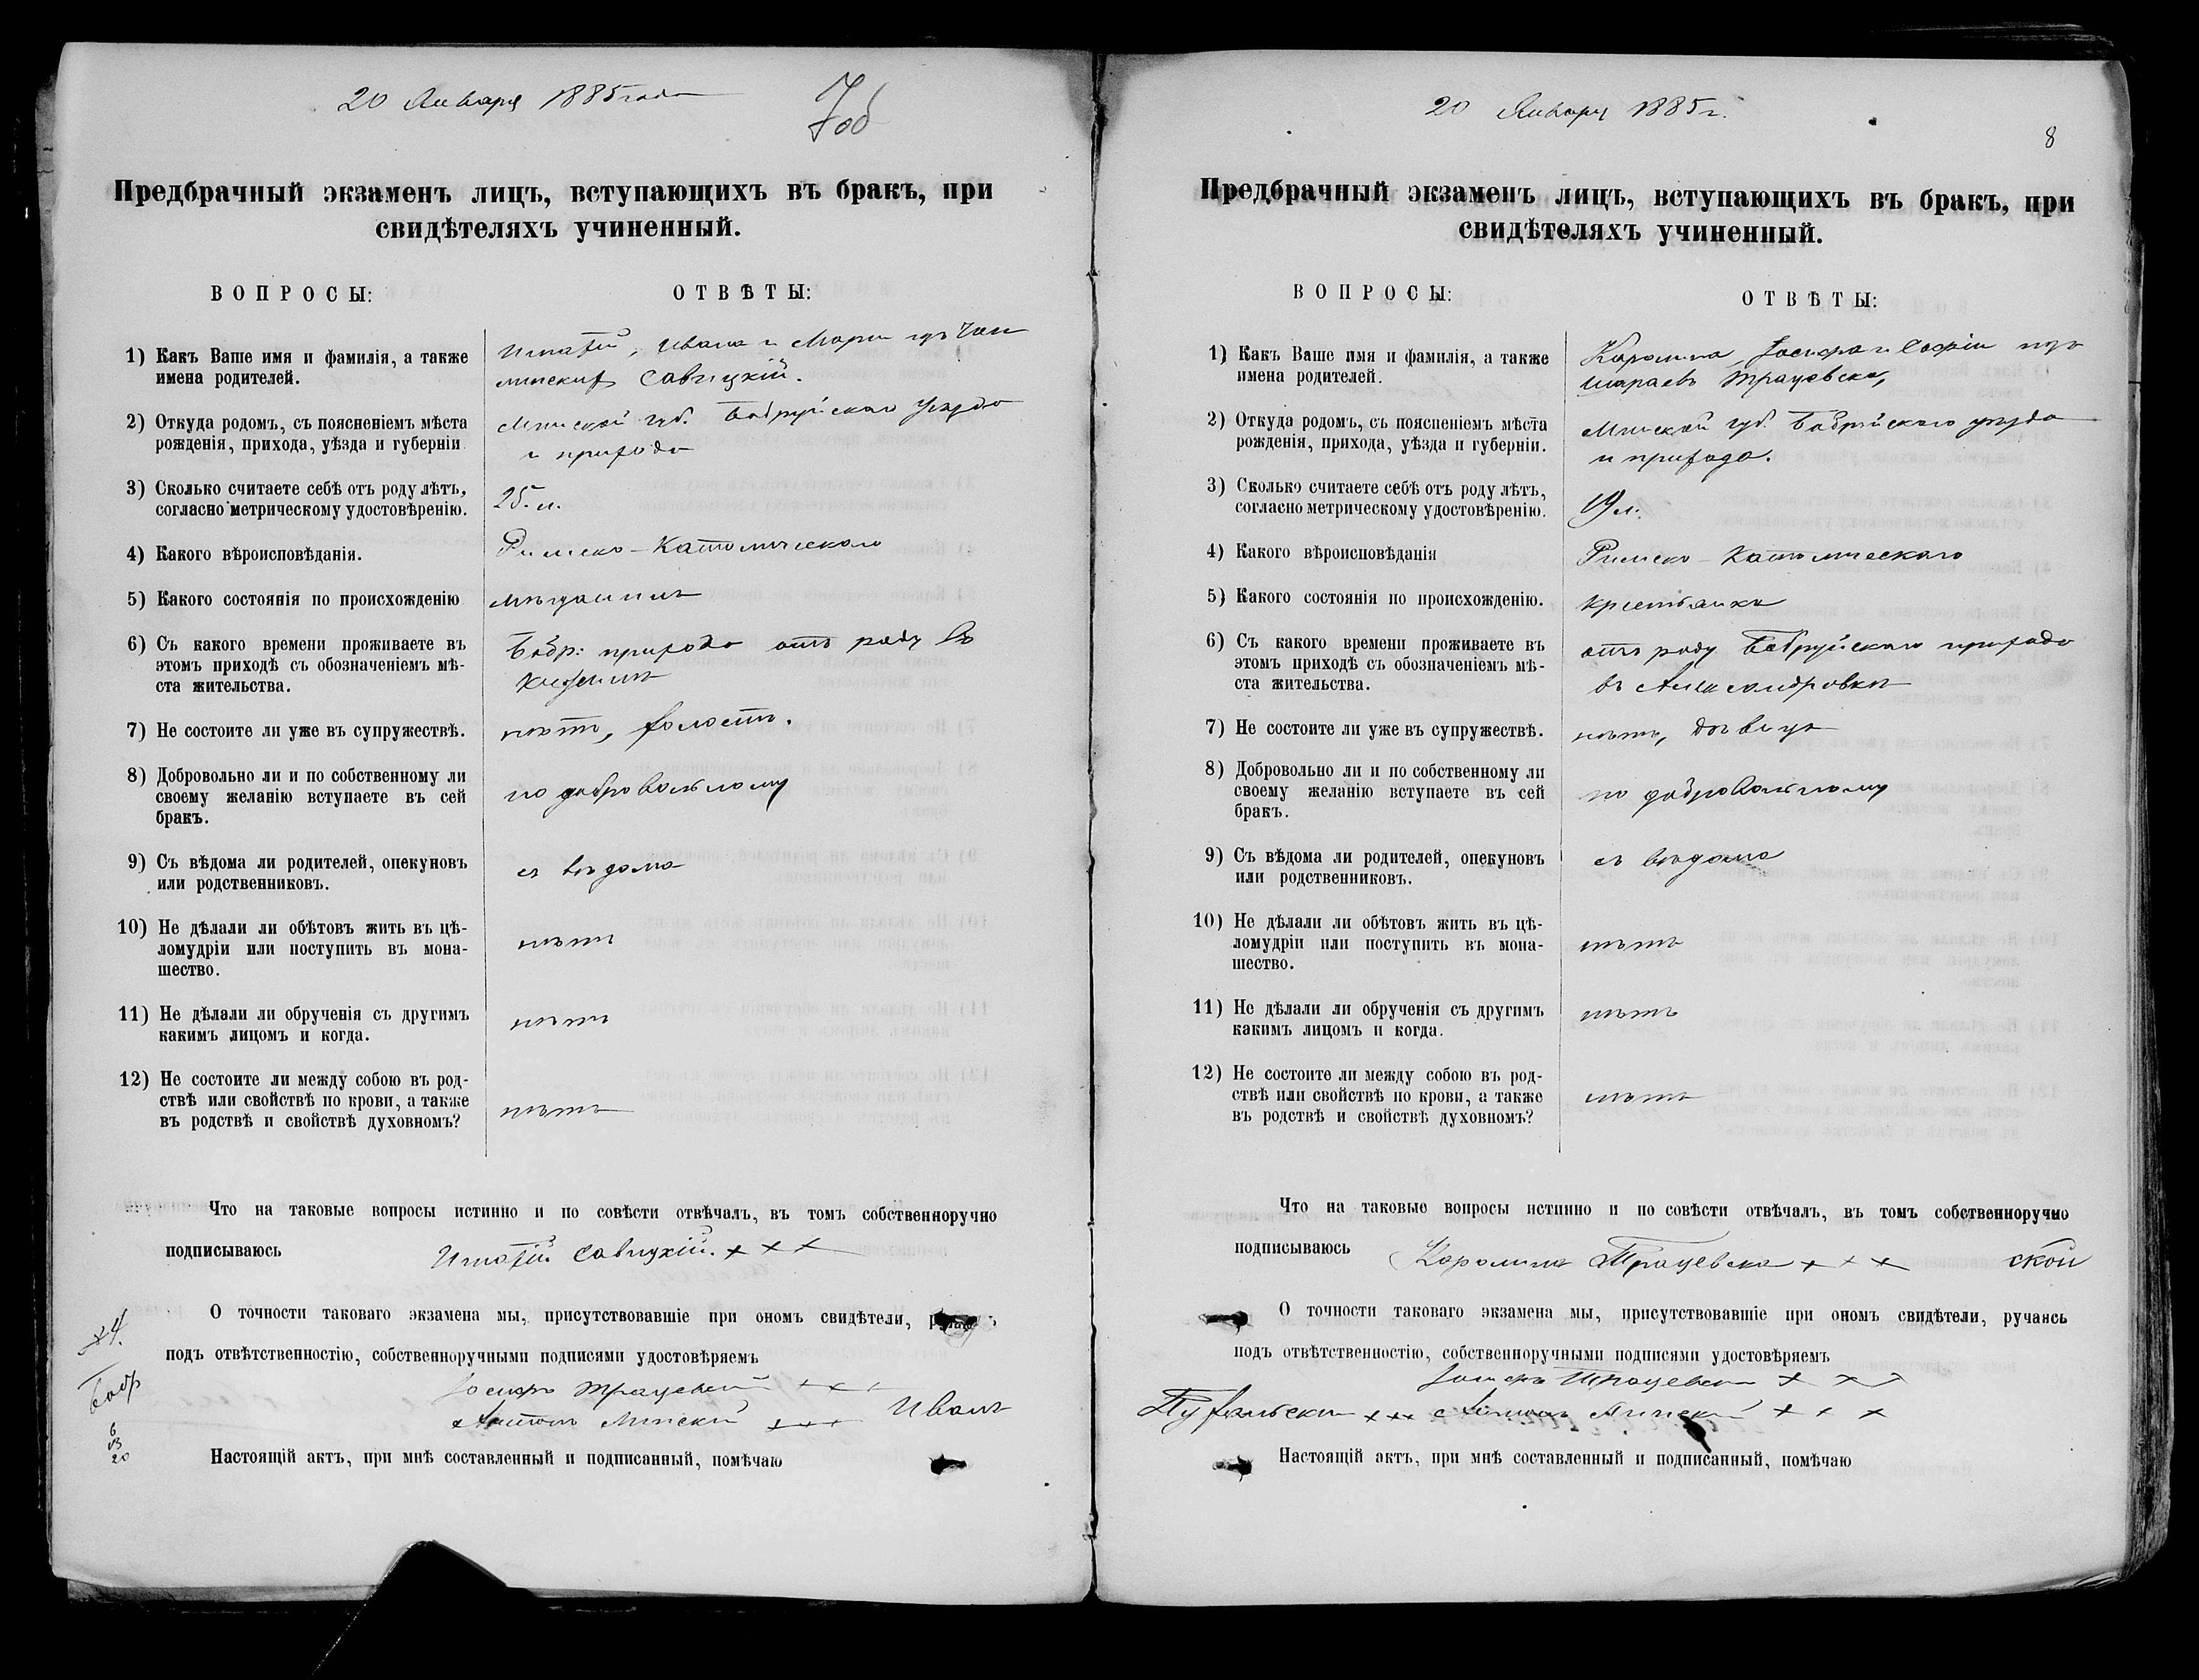 20 Января 1885 года
7об
Предбрачный экзаменъ лицъ, вступающихъ въ бракъ, при
свидѣтеляхъ учиненный.
ВОПРОСЫ:
ОТВѢТЫ:
1) Какъ Ваше имя и фамилія, а также
имена родителей.
Игнатій, Ивана и Маріи изъ
Савицкій.
2) Откуда родомъ, съ поясненіемъ мѣста
рожденія, прихода, уѣзда и губерніи
Минской губ. Бобруйскаго уѣзда
и прихода
3) Сколько считаете себѣ отъ роду лѣтъ,
согласно метрическому удостовѣренію.
25 л.
4) Какого вѣроисповѣданія.
Римско-Католическаго
5) Какого состоянія по происхожденію
мѣщанинъ
6) Съ какого времени проживаете въ
этомъ приходѣ съ обозначеніемъ мѣ-
ста жительства.
Бобр: прихода отъ роду въ
7) Не состоите ли уже въ супружествѣ.
нѣтъ, холостъ.
8) Добровольно ли и по собственному ли
своему желанію вступаете въ сей
бракъ.
по добровольному
9) Съ вѣдома ли родителей, опекуновъ
или родственниковъ.
съ вѣдома
10) Не дѣлали ли обѣтовъ жить въ цѣ-
ломудріи или поступить въ мона-
шество.
нѣтъ
11) Не дѣлали ли обрученія съ другимъ
какимъ лицомъ и когда.
нѣтъ
12) Не состоите ли между собою въ род-
ствѣ или свойствѣ по крови, а также
въ родствѣ и свойствѣ духовномъ?
нѣтъ
Что на таковые вопросы истинно и по совѣсти отвѣчалъ, въ томъ собственноручно
подписываюсь
Игнатій Савицкій. + + +
О точности таковаго экзамена мы, присутствовавшіе при ономъ свидѣтели,
подъ отвѣтственностію, собственноручными подписями удостовѣряемъ
Іосифъ Трацевскій + + +
Антонъ + + + Иванъ
№4.
Бобр
Настоящій актъ, при мнѣ составленный и подписанный, помѣчаю
20 Января 1885 г.
8
Предбрачный экзаменъ лицъ, вступающихъ въ бракъ, при
свидѣтеляхъ учиненный.
ВОПРОСЫ:
ОТВѢТЫ:
1) Какъ Ваше имя и фамилія, а также
имена родителей.
Каролина, Іосифа и Софіи изъ
Трацевска,
2) Откуда родомъ, съ поясненіемъ мѣста
рожденія, прихода, уѣзда и губерніи.
Минской губ. Бобруйскаго уѣзда
и прихода.
3) Сколько считаете себѣ отъ роду лѣтъ,
согласно метрическому удостовѣренію.
19 л.
4) Какого вѣроисповѣданія
Римско-Католическаго
5) Какого состоянія по происхожденію.
крестьянка
6) Съ какого времени проживаете въ
этомъ приходѣ съ обозначеніемъ мѣ-
ста жительства.
отъ роду Бобруйскаго прихода
въ Александровкѣ
7) Не состоите ли уже въ супружествѣ.
нѣтъ, дѣвица
8) Добровольно ли и по собственному ли
своему желанію вступаете въ сей
бракъ.
по добровольному
9) Съ вѣдома ли родителей, опекуновъ
или родственниковъ.
съ вѣдома
10) Не дѣлали ли обѣтовъ жить въ цѣ-
ломудріи или поступить въ мона-
шество.
нѣтъ
11) Не дѣлали ли обрученія съ другимъ
какимъ лицомъ и когда.
нѣтъ
12) Не состоите ли между собою въ род-
ствѣ или свойствѣ по крови, а также
въ родствѣ и свойствѣ духовномъ?
нѣтъ
Что на таковые вопросы истинно и по совѣсти отвѣчалъ, въ томъ собственноручно
подписываюсь
Каролина Трацевска + + + ской
О точности таковаго экзамена мы, присутствовавшіе при ономъ свидѣтели, ручаясь
подъ отвѣтственностію, собственноручными подписями удостовѣряемъ
Іосифъ Трацевскій + + +
+++ Антонъ + + +
Настоящій актъ, при мнѣ составленный и подписанный, помѣчаю